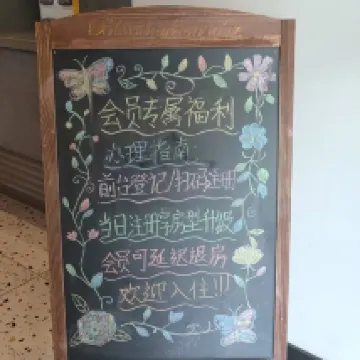 会员专属福利
办理指南:
前台登记/扫码注册
当日注册享房型升级
会员可延迟退房
欢迎入住!!!